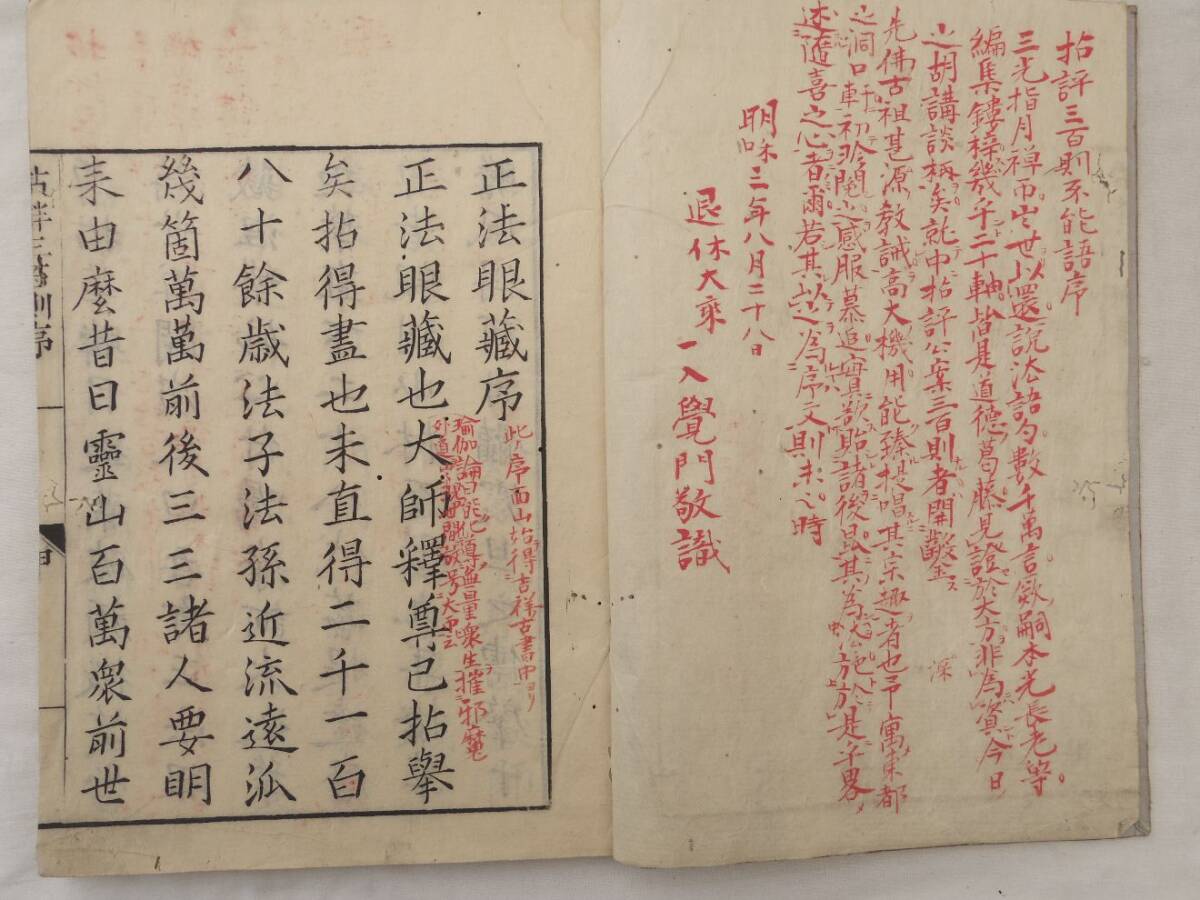 拈評三百則不能語序
三光指月禅師出世以還説法語句數千萬言歟嗣本光長老等
編集鏤梓幾乎二十軸皆是道德葛藤見證於大方非為資今日
之胡講談柄矣就中拈評公案三百則者開鑿金ス
深
先佛古祖甚源教誡高大機用能臻提唱其宗趣者也予寓東都
之洞口軒初聆閲感服慕追寔欲貽諸後昆其為法施於是乎畧
述隨喜之心者爾若其以之為序又則未之時
明咊二年八月二十八日
退休大乘一入覺門敬識
正法眼藏序
此序面山拈得吉祥古書中ヨリ
正法眼藏也大師釋尊已拈舉
瑜伽論曰能化導無量衆生摧邪魔
外道
矣拈得盡也未直得二千一百
八十餘歳法子法孫近流遠泒
幾箇萬萬前後三三諸人要明
来由麼昔日靈山百萬衆前世